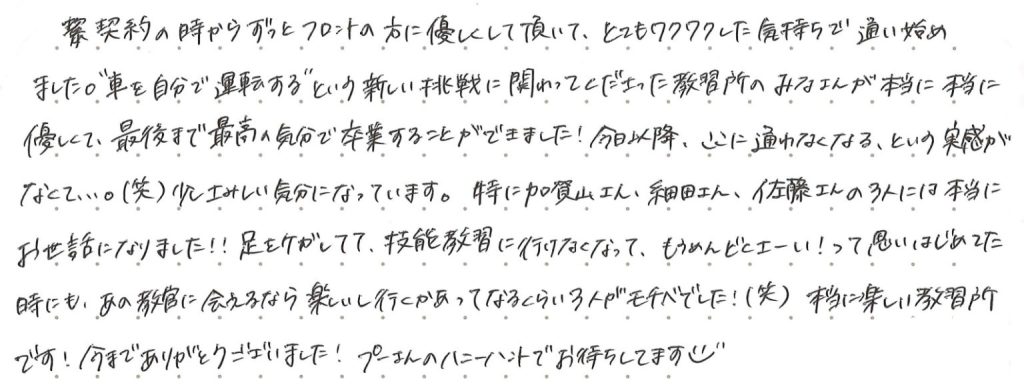 契約の時からずっとフロントの方に優しくして頂いて、とてもワクワクした気持ちで通い始め
ました。"車を自分で運転する"という新しい挑戦に関わってくださった教習所のみなさんが本当に本当に
優しくて、最後まで最高の気分で卒業することができました!今日以降、ここに通わなくなる、という実感が
なくて...。(笑)少しさみしい気分になっています。特に加賀山さん、細田さん、佐藤さんの3人には本当に
お世話になりました!!足をケガしてて、技能教習に行けなくなって、もうめんどくさーい!って思いはじめてた
時にも、あの教官に会えるなら楽しいし行くかあってなるくらい3人がモチベでした!(笑)本当に楽しい教習所
です!今までありがとうございました!プーさんのハニーハントでお待ちしてます